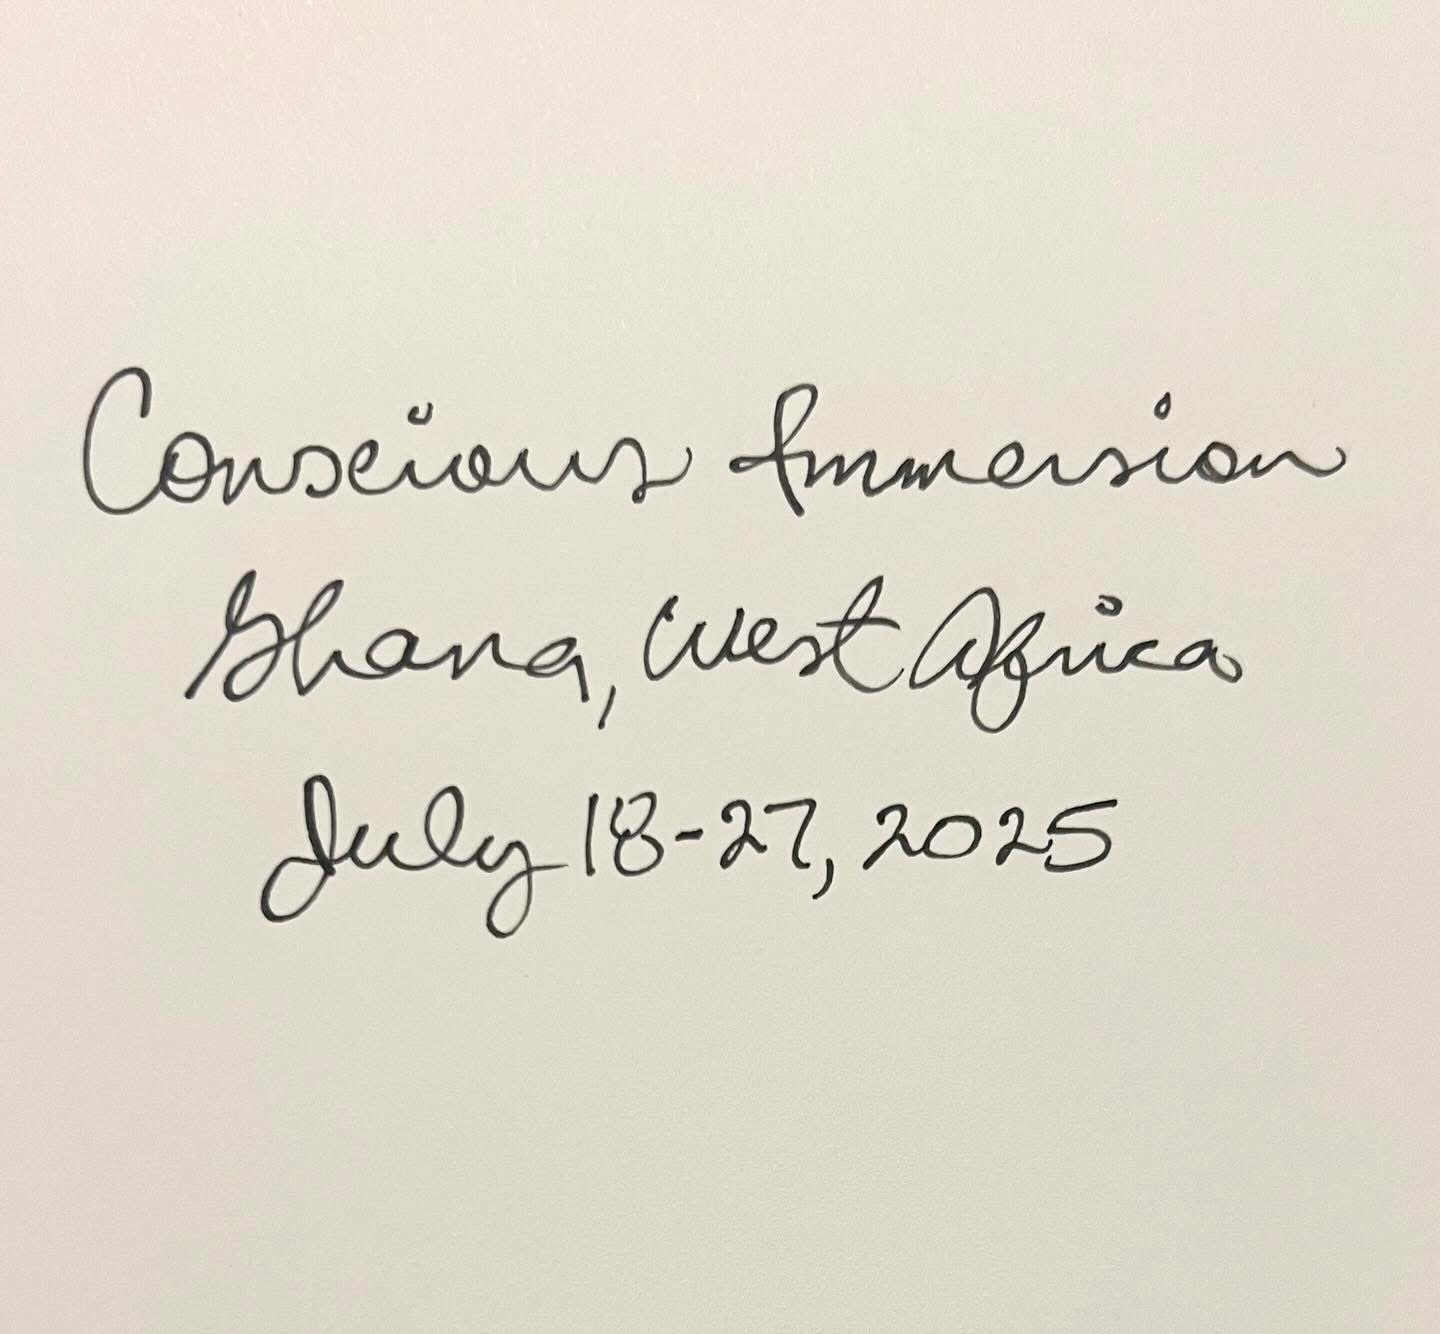 Conscious Immersion
Ghana, West Africa
July 18-27, 2025